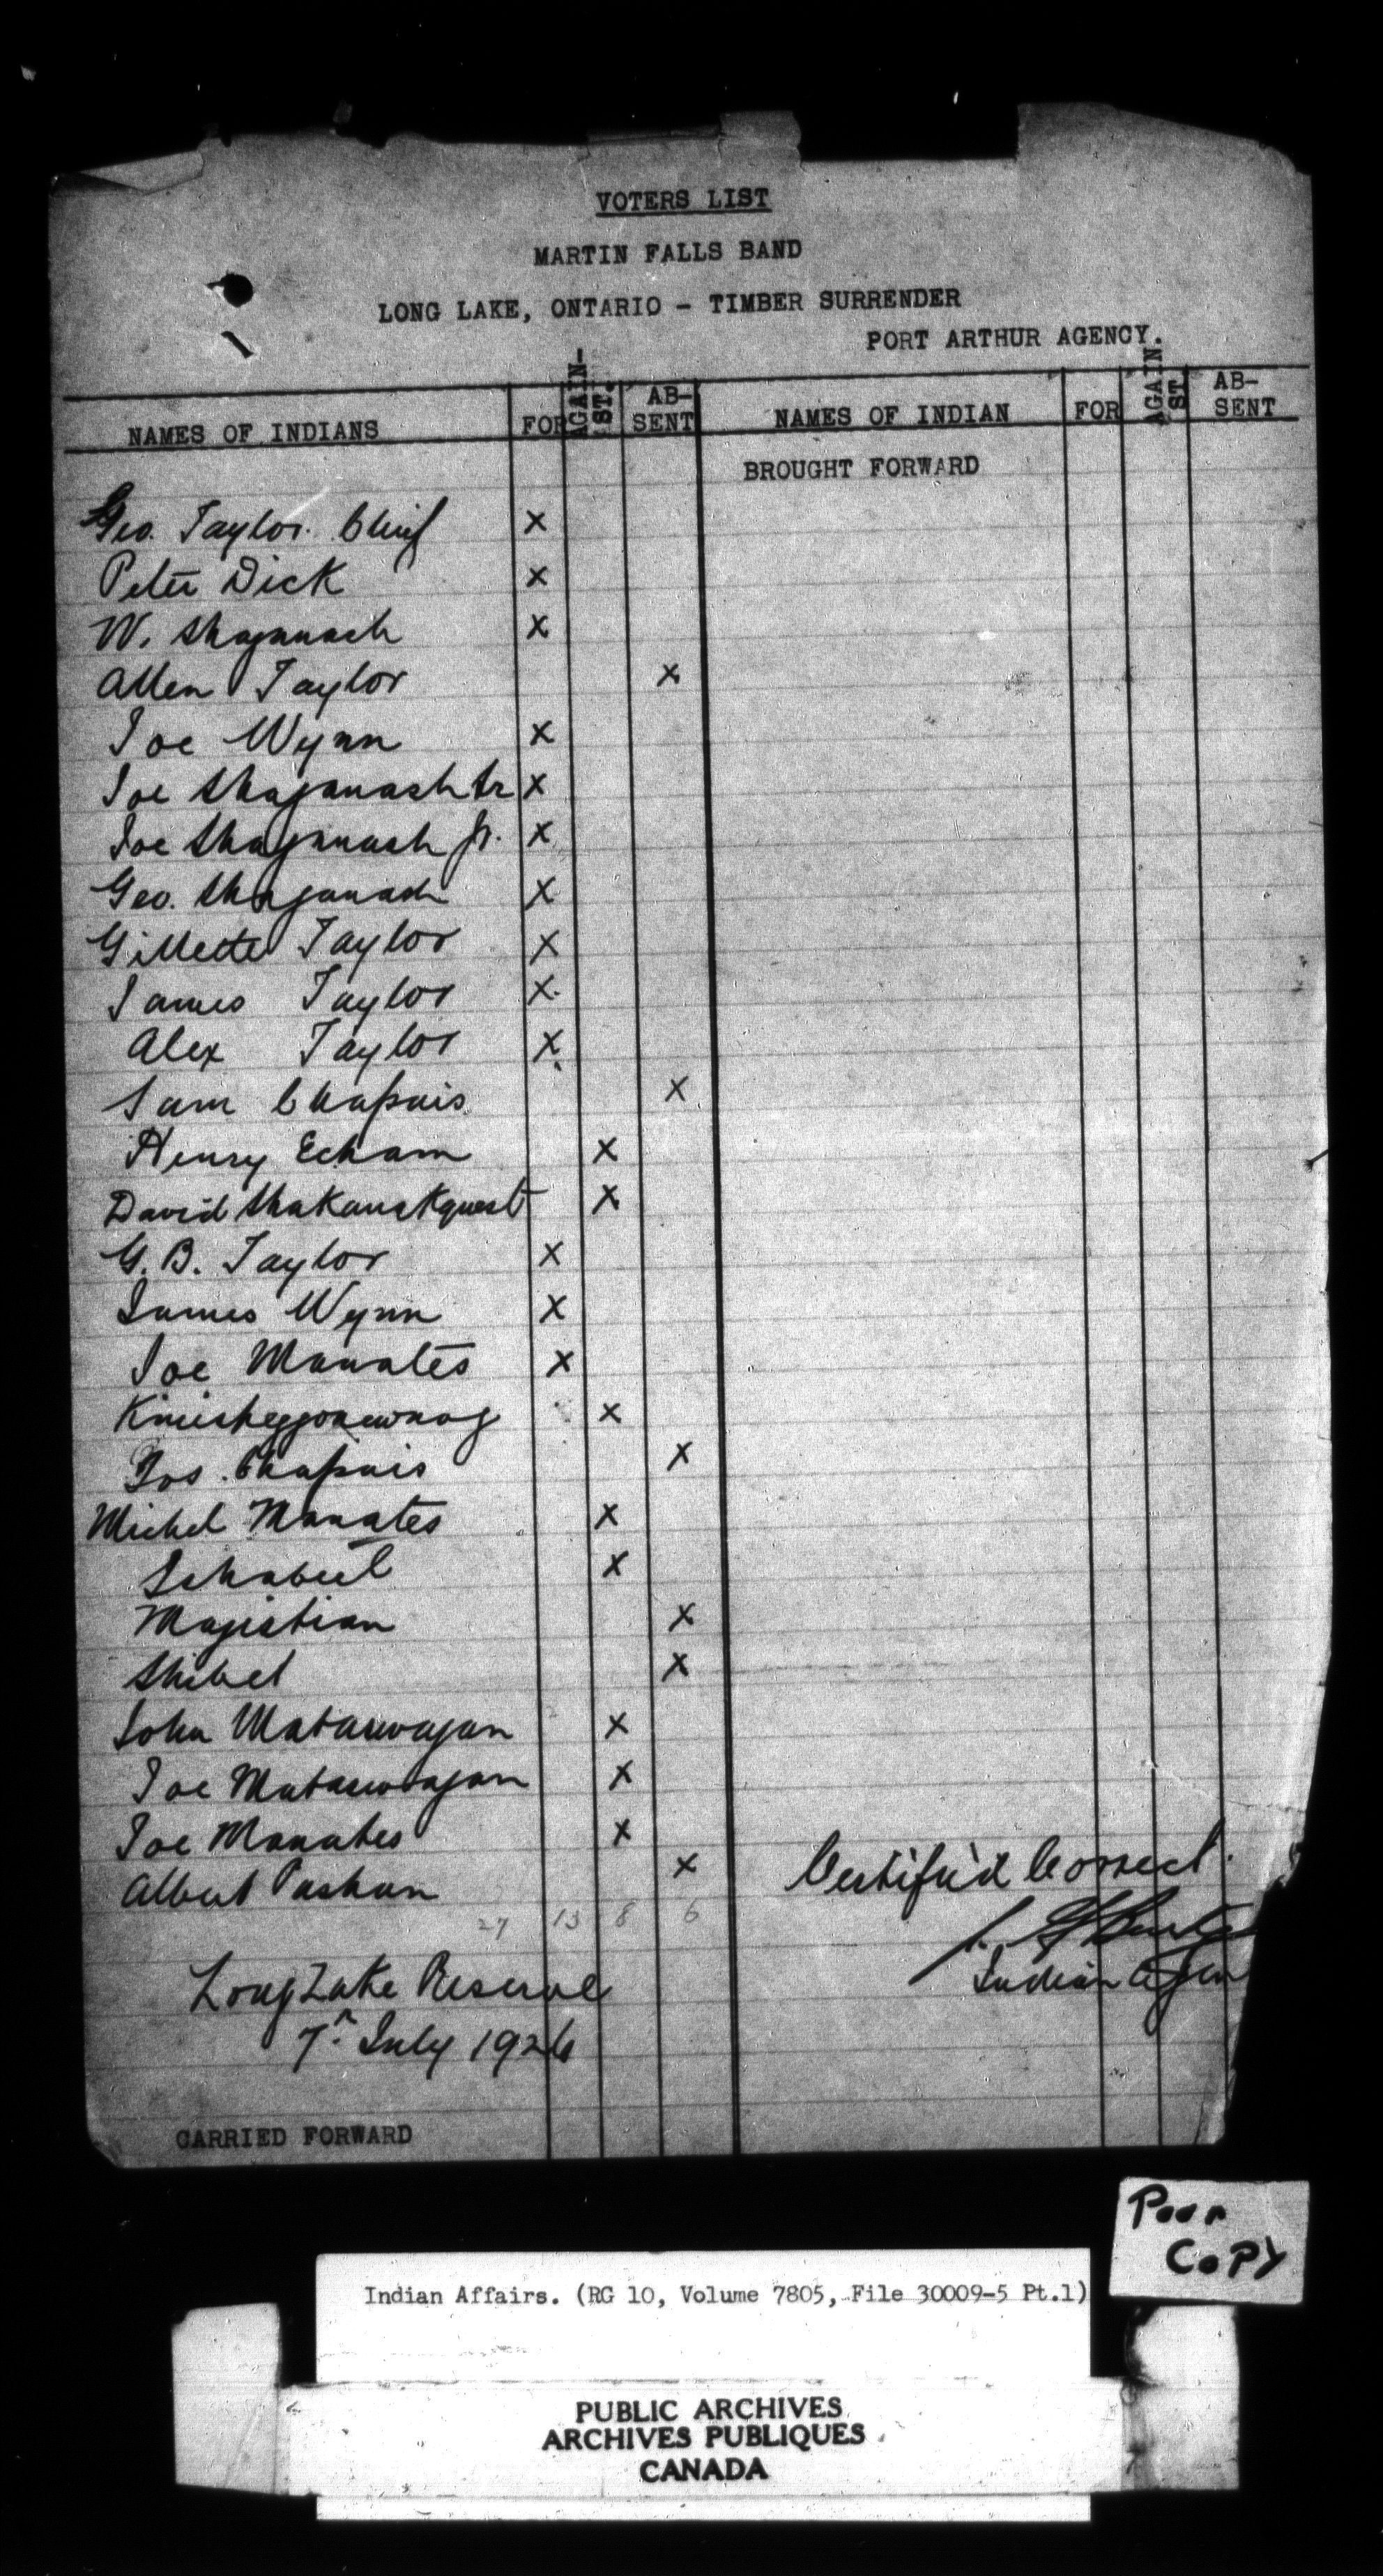 VOTERS LIST
MARTIN FALLS BAND
LONG LAKE, ONTARIO - TIMBER SURRENDER
PORT ARTHUR AGENCY.
NAMES OF INDIANS FOR AGAIN-ST. AB-SENT NAMES OF INDIAN FOR AGAINST AB-SENT
BROUGHT FORWARD
Geo. Taylor. Chief x
Peter Dick x
W. Shaganash x
Allen Taylor x
Joe Wynn x
Joe Shaganash Sr x
Joe Shaganash Jr. x
Geo. Shaganash x
Gillette Taylor x
James Taylor x
Alex Taylor x
Sam Chapais x
Henry Echam x
David x
G. B. Taylor x
James Wynn x
Joe Manates x
x
Jos. Chapais x
Michel Manates x
x
Magistian x
Shibel x
John Matawagan x
Joe Matawagan x
Joe Manates x
Albert Pashan x
27 13 8 6
Certified Correct.
Indian Agen
Long Lake Reserve
7th July 1926
CARRIED FORWARD
Poor
COPY
Indian Affairs. (RG 10, Volume 7805, File 30009-5 Pt.1)
PUBLIC ARCHIVES
ARCHIVES PUBLIQUES
CANADA